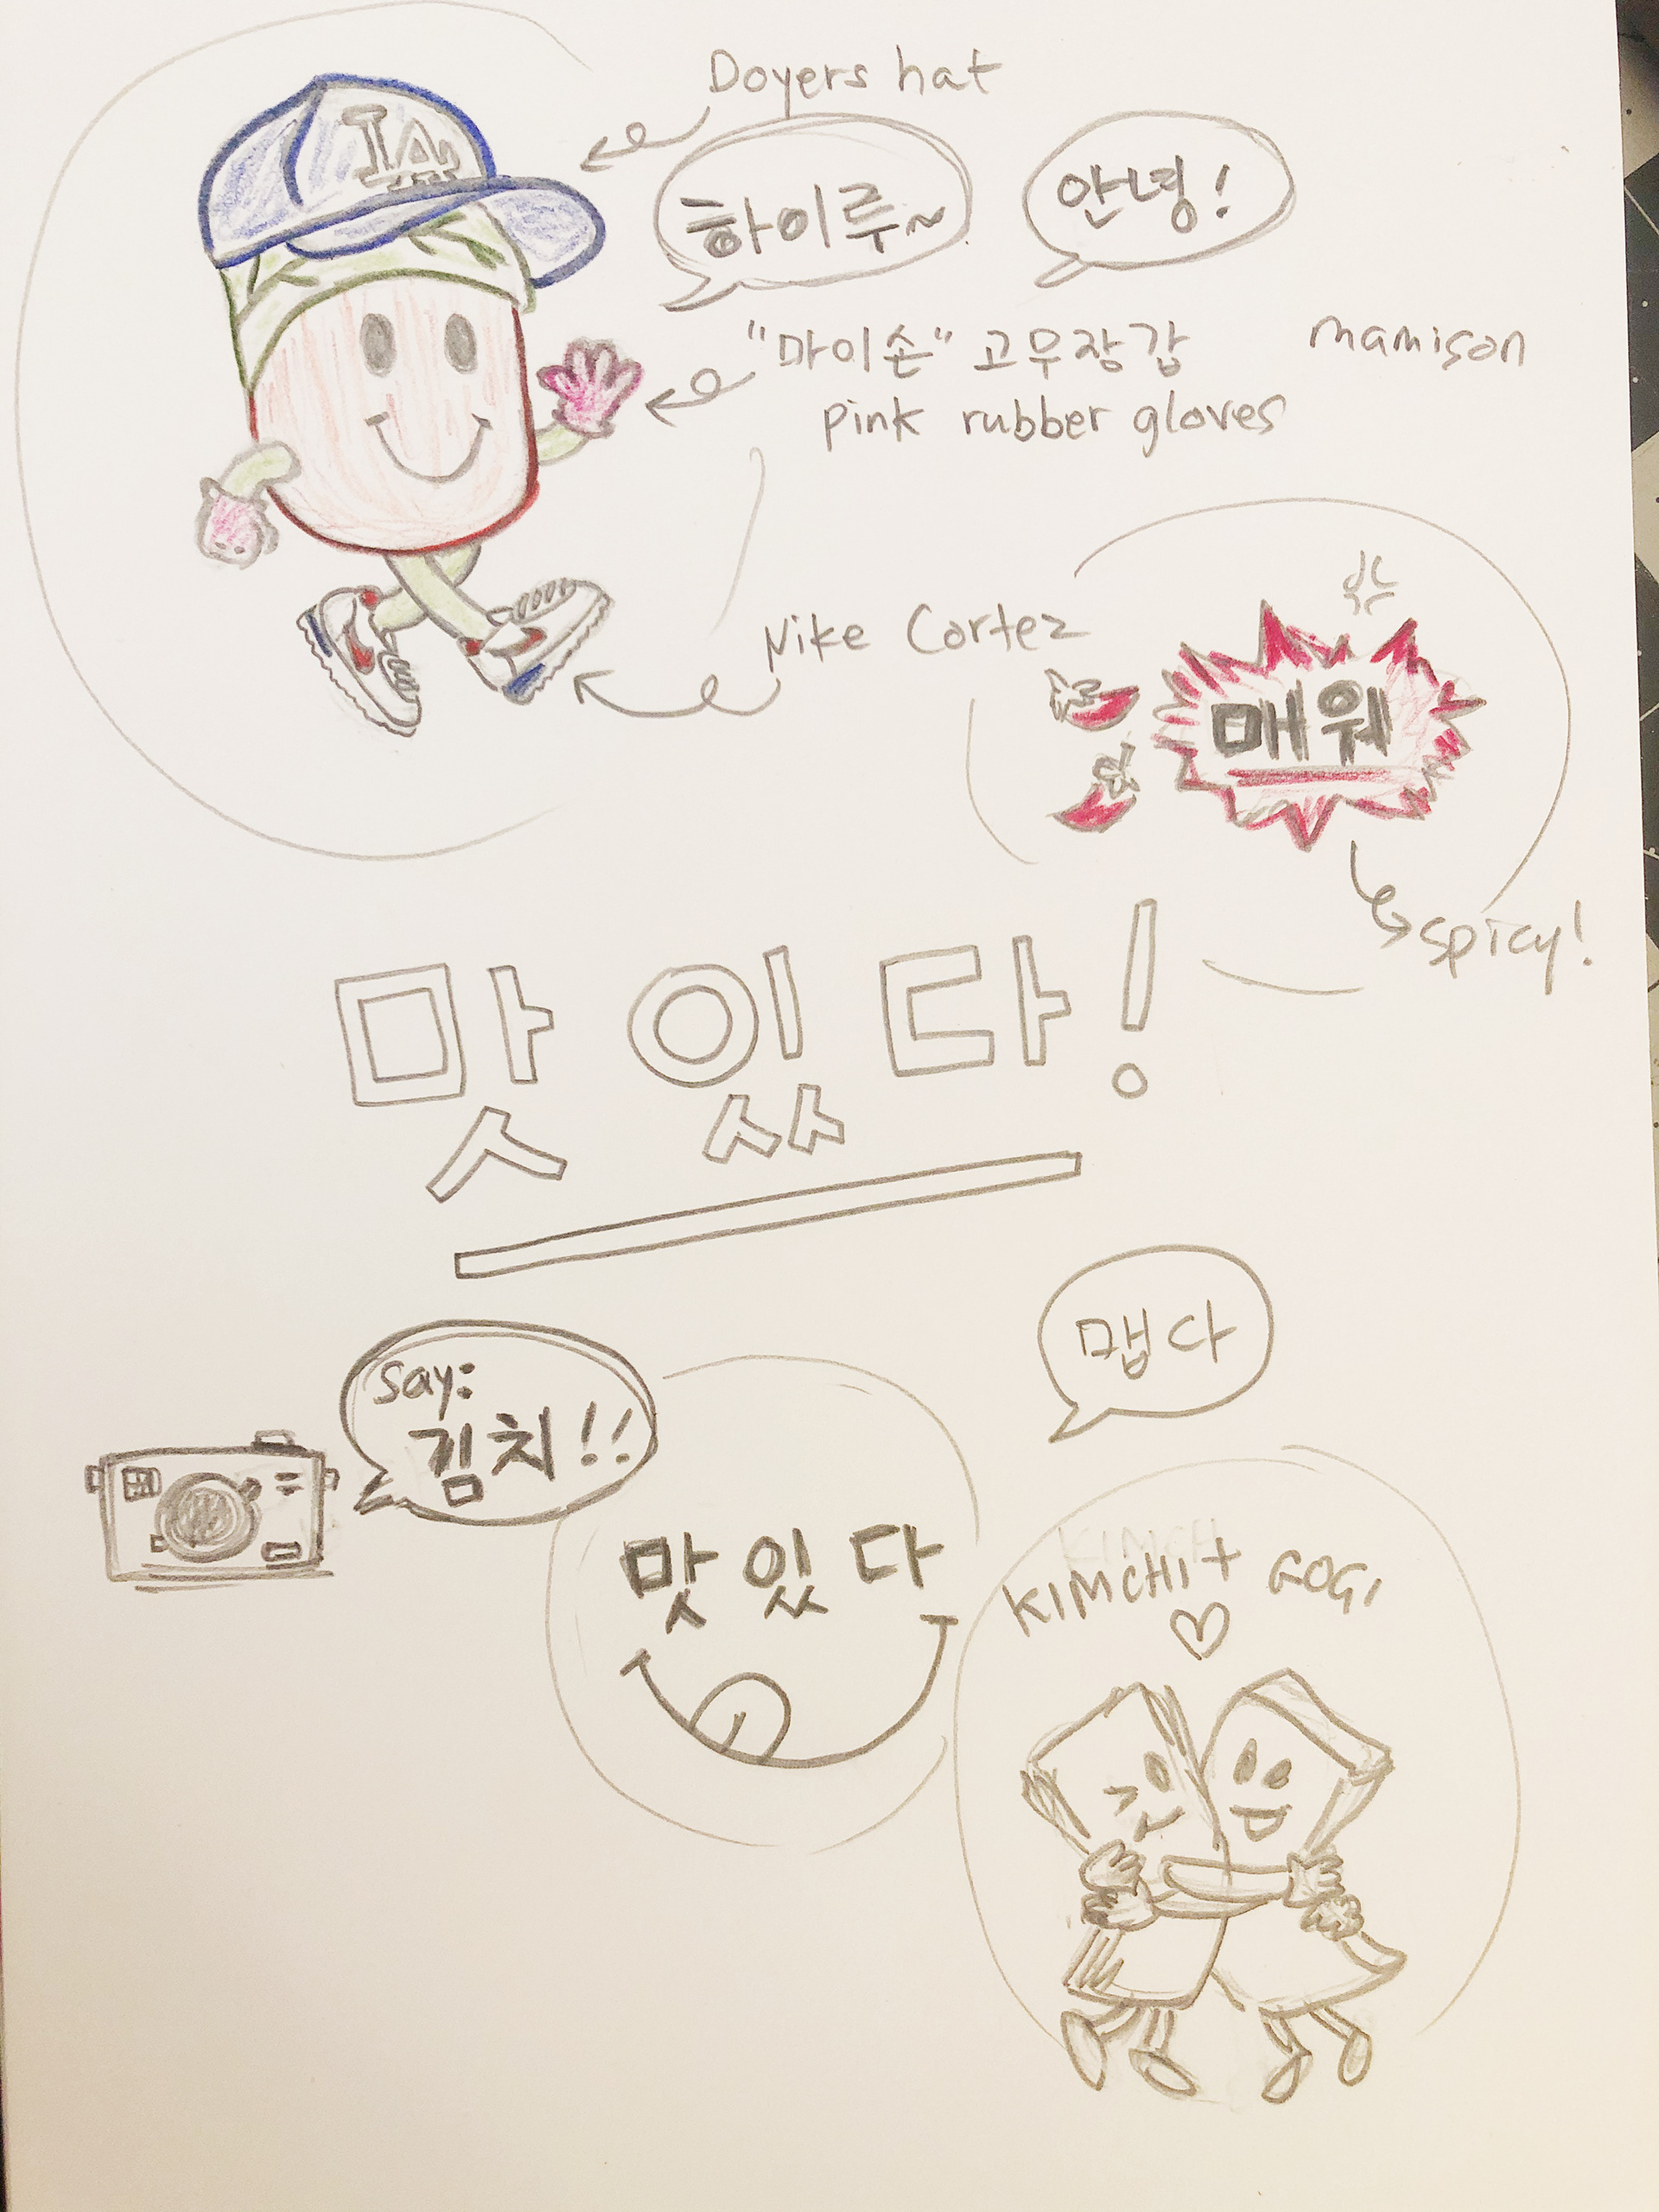 Doyers hat
LA
하이루~
안녕!
"마이손" 고무장갑
mamison
pink rubber gloves
Nike Cortez
매웨
spicy!
맛있다!
맵다
say:
김치!!
맛있다
KIMCH
KIMCHI + GOGI